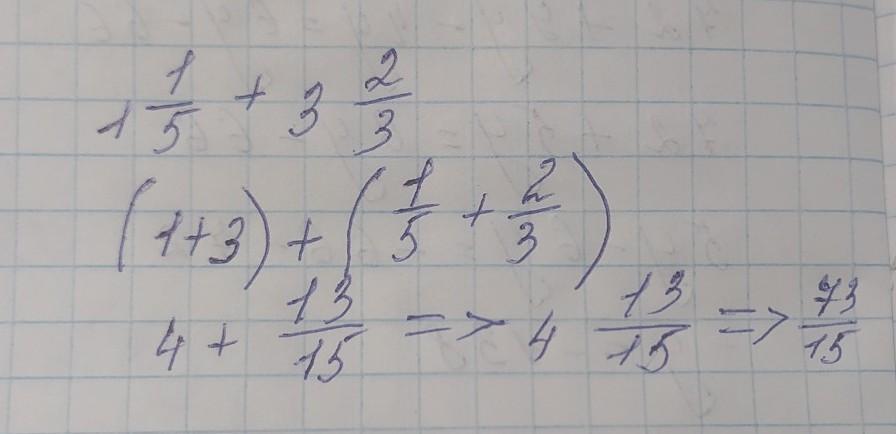 1 1/5 + 3 2/3
(1+3) + (1/5 + 2/3)
4 + 13/15 => 4 13/15 => 73/15